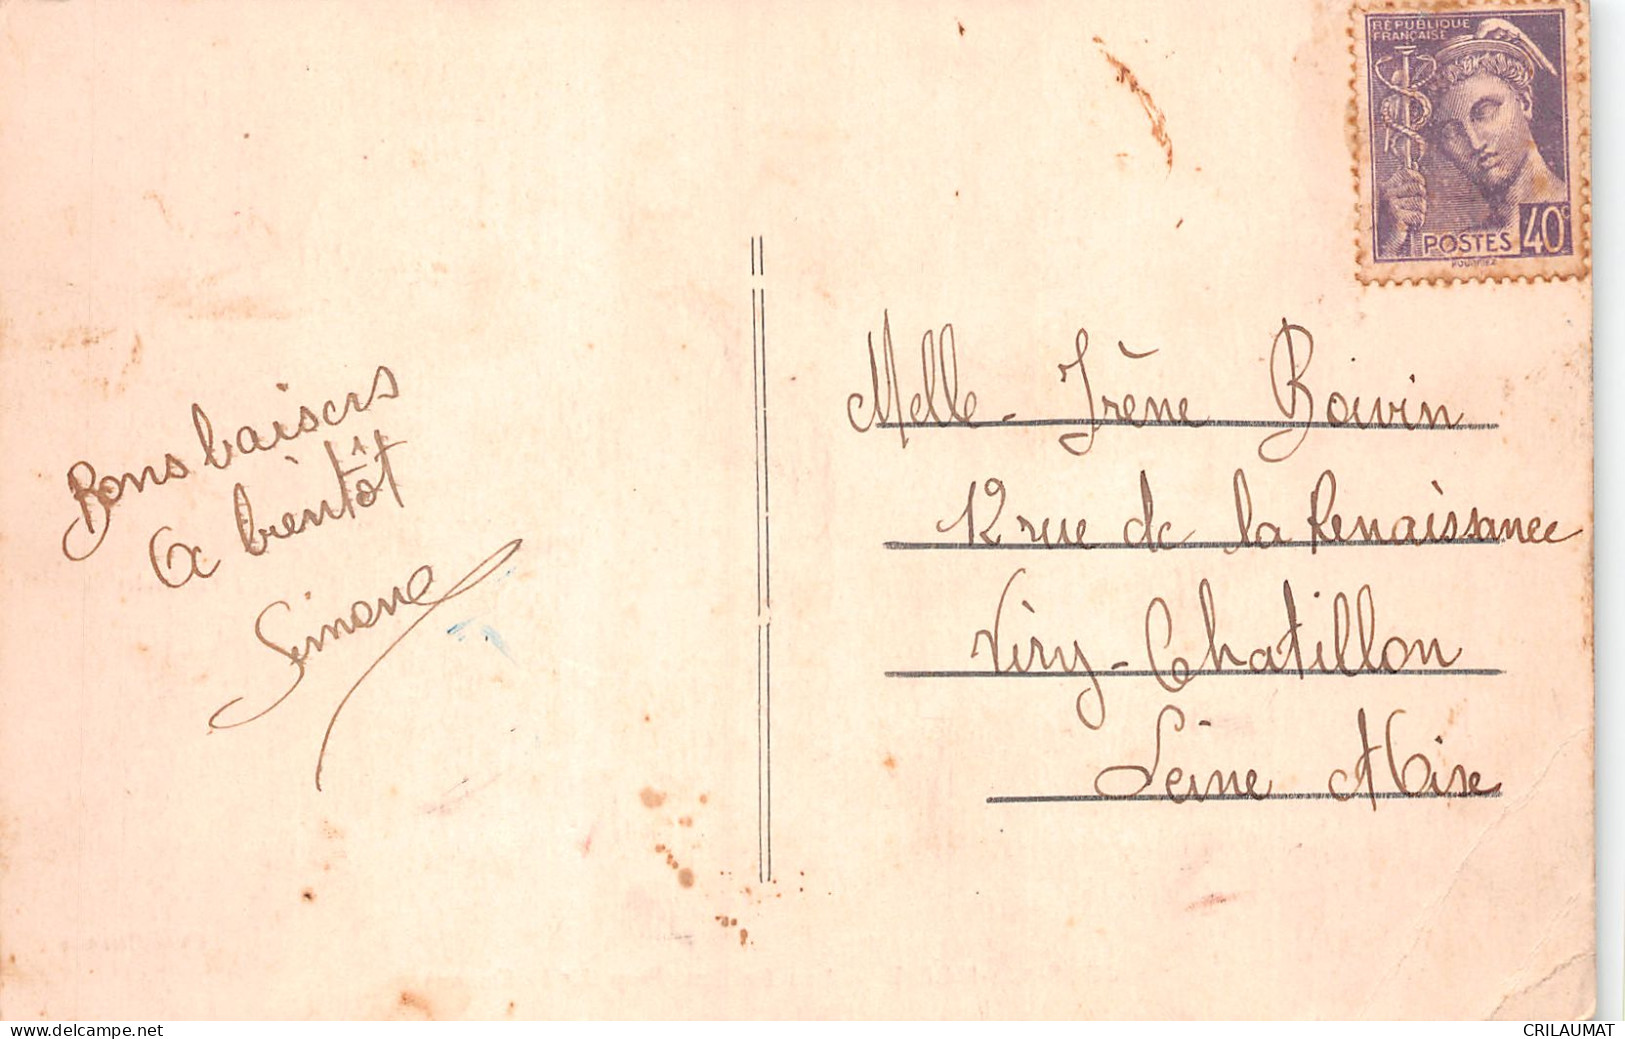 Bons baisers
A bientôt
Simone
RÉPUBLIQUE
FRANÇAISE
POSTES 40c
Melle Irène Boivin
12 rue de la Renaissance
Viry-Chatillon
Seine et Oise
www.delcampe.net
CRILAUMAT